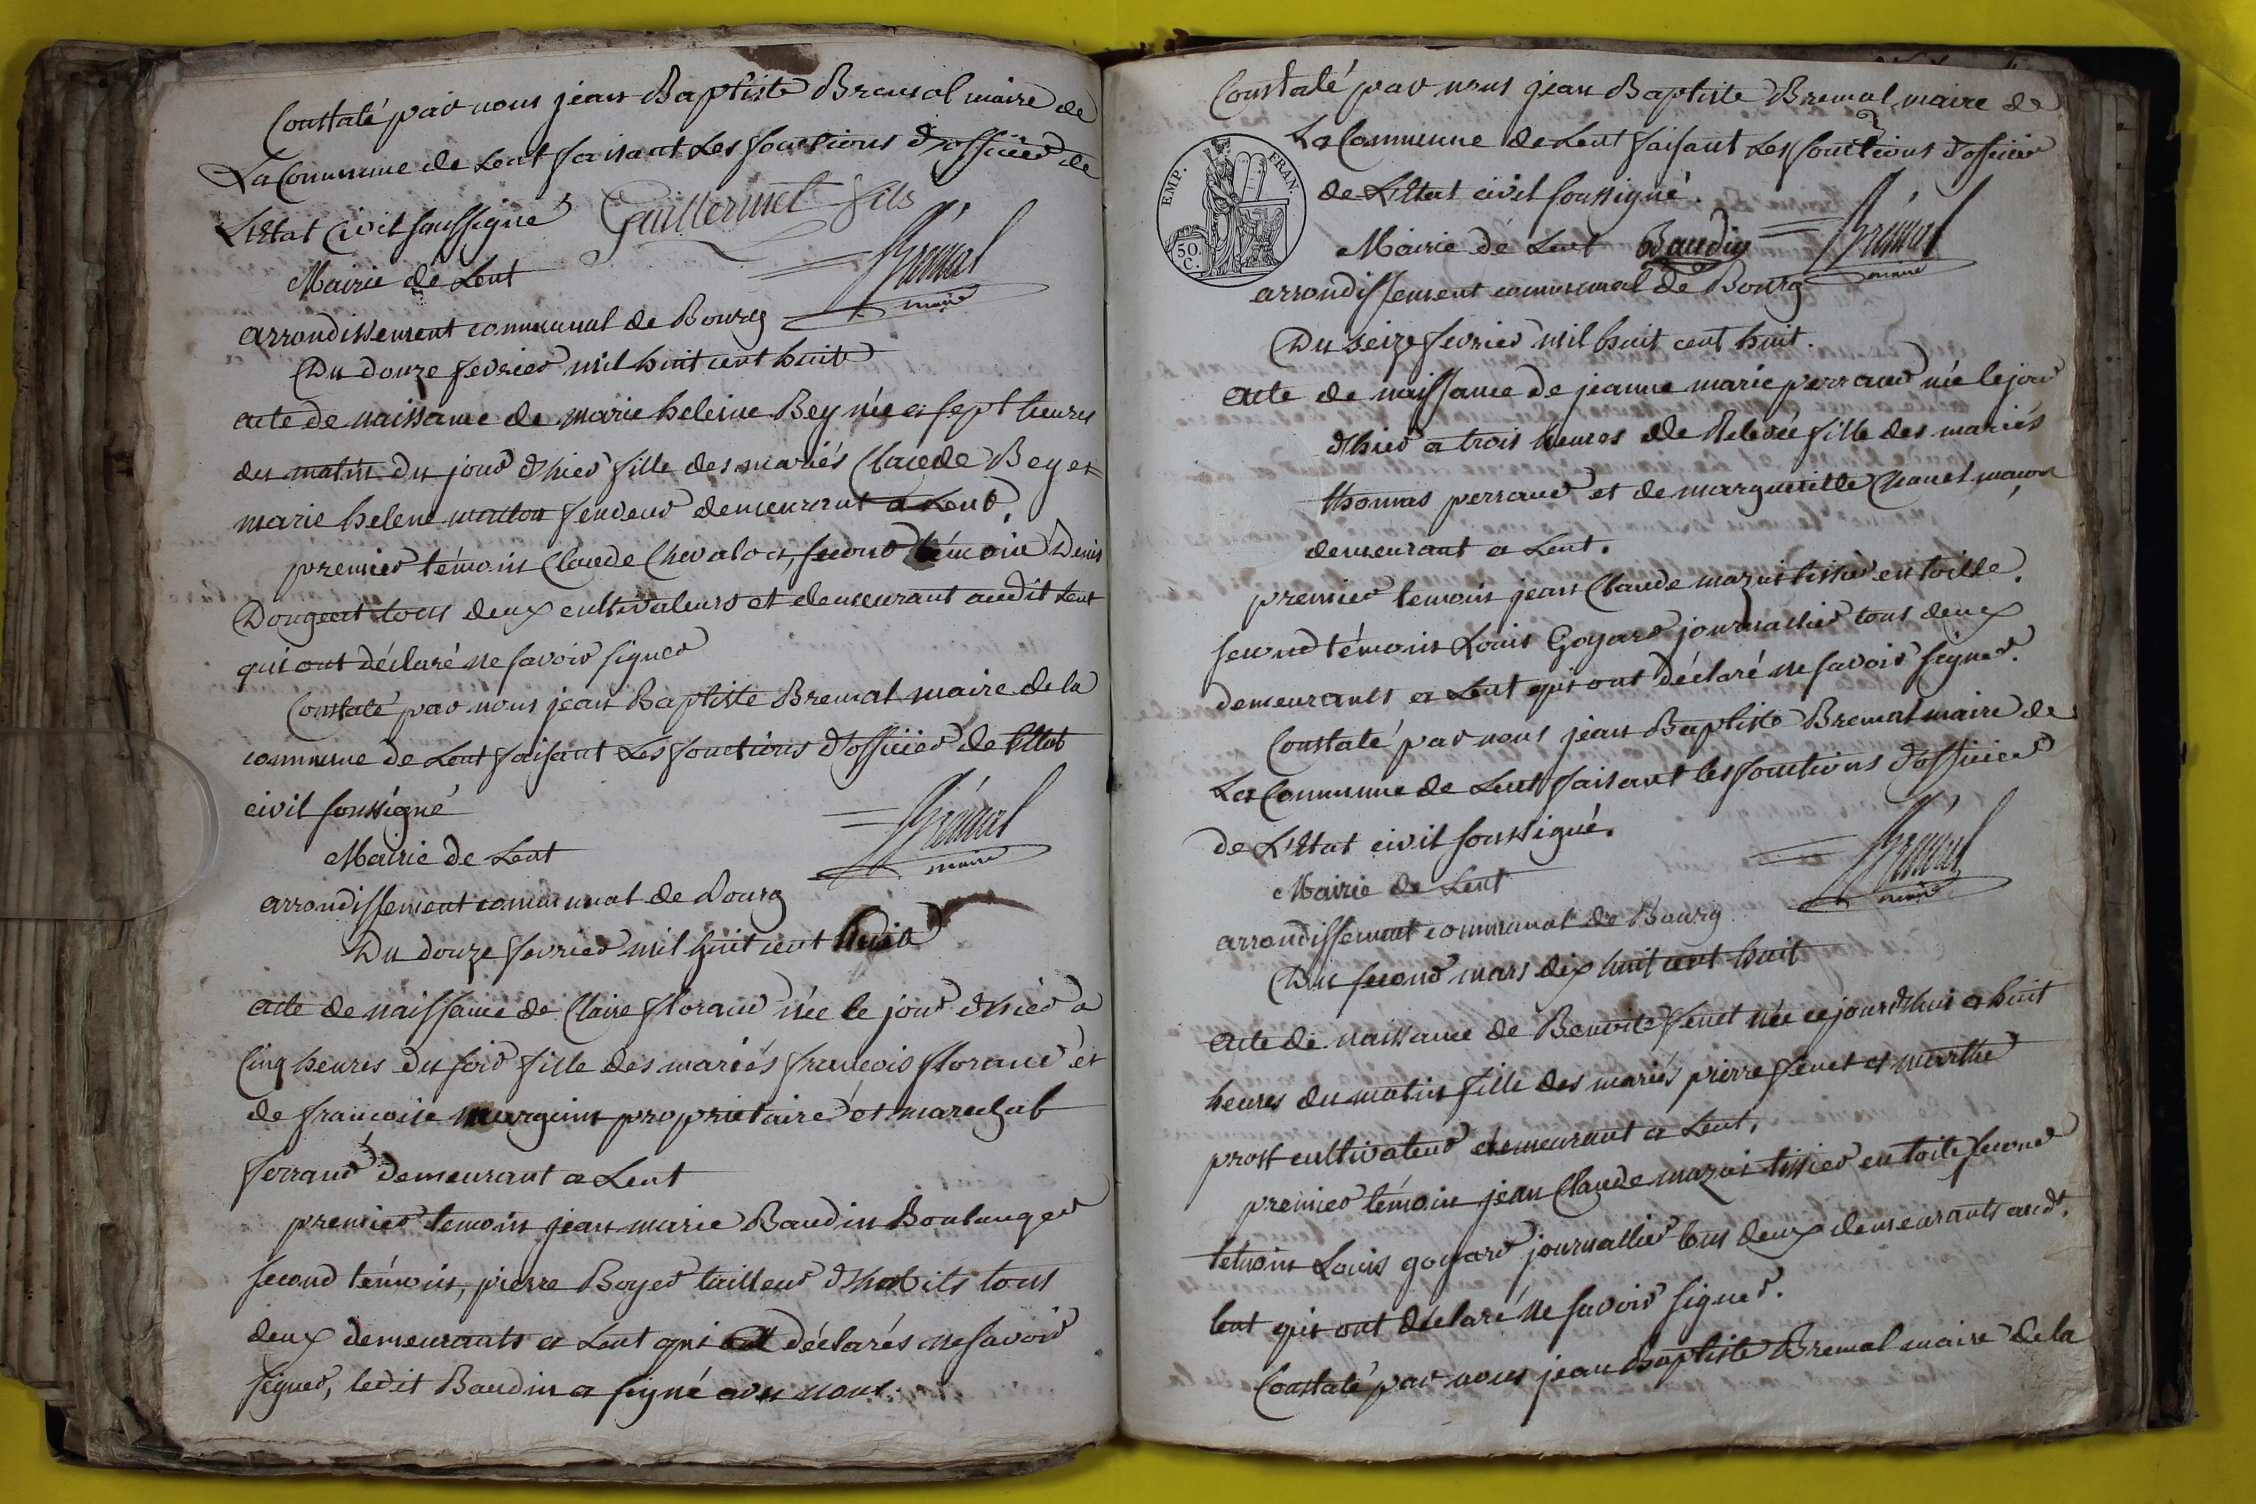 Constaté par nous jean Baptiste Bremal maire de
La Commune de Lent faisant Les fonctions d'officier de
L'Etat Civil soussigné Guillermet fils
Brémal
maire
Mairie de Lent
arrondissement communal de Bourg
Du douze fevrier mil huit cent huit
acte de naissance de marie heleine Bey née a sept heures
du matin du jour d'hier fille des mariés Claude Bey et
marie helene fendeur demeurant a Lent.
premier témoin Claude Chevalon, second témoin Denis
Dougeat tous deux cultivateurs et demeurant audit Lent
qui ont déclaré ne savoir signer
Constaté par nous jean Baptiste Bremal maire de la
commune de Lent faisant Les fonctions d'officier de l'Etat
civil soussigné
Brémal
maire
Mairie de Lent
arrondissement communal de Bourg
Du douze fevrier mil huit cent huit
acte de naissance de Claire floraud née le jour d'hier a
Cinq heures du soir fille des mariés françois floraud et
de francoise proprietaire et marechal
ferrand demeurant a Lent
premier temoin jean marie Baudin Boulanger
second témoin, pierre Boyer tailleur d'habits tous
deux demeurants a Lent qui déclarés ne savoir
signer, ledit Baudin a signé avec nous.
Constaté par nous jean Baptiste Bremal, maire de
La Commune de Lent faisant Les fonctions d'officier
de L'Etat civil soussigné.
EMP. FRAN.
50.
C.
Mairie de Lent Baudin Brémal
maire
arrondissement communal de Bourg
Du seize fevrier mil huit cent huit.
acte de naissance de jeanne marie perraud née le jour
d'hier a trois heures de Relevée fille des mariés
thomas perraud et de margueritte Chanel maçon
demeurant a Lent.
premier temoin jean Claude mazuis tissier en toille.
second témoin Louis Goyard journallier tous deux
demeurants a Lent qui ont déclaré ne savoir signer.
Constaté par nous jean Baptiste Bremal maire de
La Commune de Lent faisant les fonctions d'officier
de L'Etat civil soussigné.
Brémal
maire
Mairie de Lent
arrondissement communal de Bourg
Du second mars dix huit cent huit
acte de naissance de Benoite fenet née cejourd'hui a huit
heures du matin fille des mariés pierre fenet et marthe
prost cultivateur demeurant a Lent.
premier témoin jean Claude mazuis tissier en toile second
temoin Louis goyard journallier tous deux demeurants aud.
lent qui ont déclaré ne savoir signer.
Constaté par nous jean Baptiste Bremal maire de la